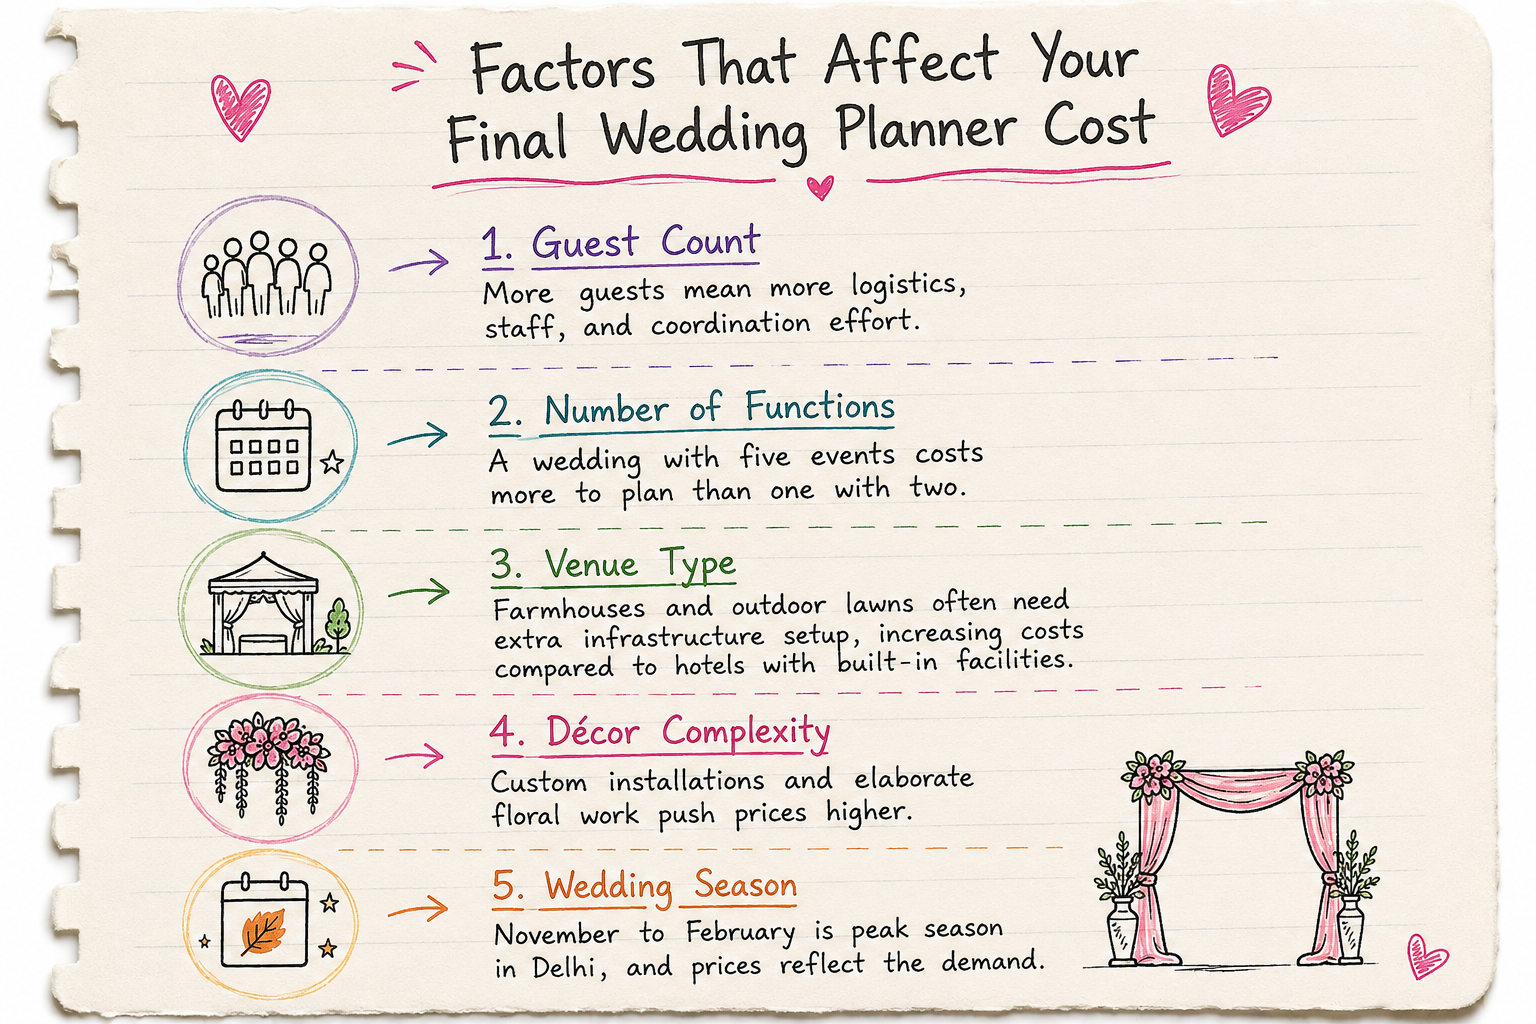 Factors That Affect Your
Final Wedding Planner Cost
1. Guest Count
More guests mean more logistics,
staff, and coordination effort.
2. Number of Functions
A wedding with five events costs
more to plan than one with two.
3. Venue Type
Farmhouses and outdoor lawns often need
extra infrastructure setup, increasing costs
compared to hotels with built-in facilities.
4. Décor Complexity
Custom installations and elaborate
floral work push prices higher.
5. Wedding Season
November to February is peak season
in Delhi, and prices reflect the demand.